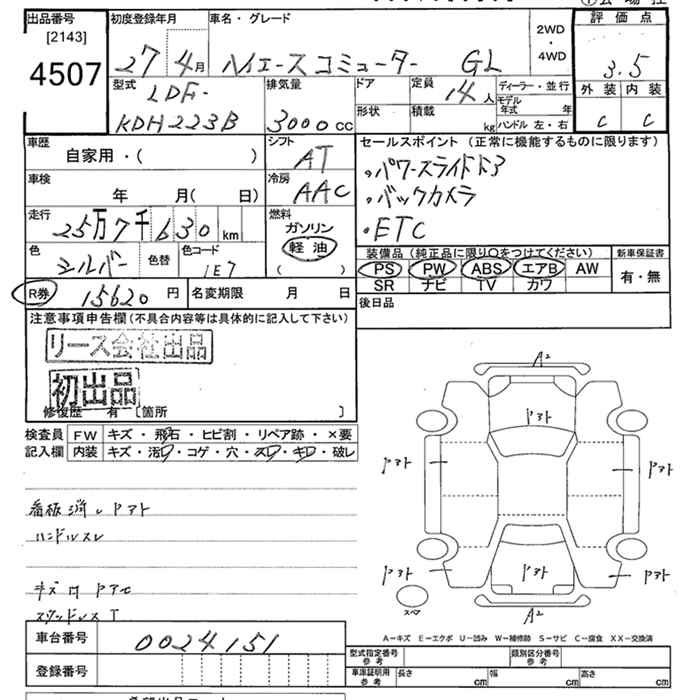 出品番号
[2143]
4507
初度登録年月
27 4月
車名・グレード
ハイエースコミューター GL
2WD
・
4WD
評価点
3.5
外装 内装
C C
型式
LDF-
KDH223B
排気量
3000cc
ドア
形状
定員
14人
積載
kg
ディーラー・並行
モデル年式 年
ハンドル 左・右
車歴
自家用・( )
シフト
AT
冷房
AAC
車検
年 月( 日)
走行
25万7千630km
燃料
ガソリン
軽油
( )
色
シルバー
色替
色コード
1E7
R券 15620円
名変期限 月 日
セールスポイント (正常に機能するものに限ります)
・パワースライドドア
・バックカメラ
・ETC
装備品(純正品に限り○をつけてください)
PS PW ABS エアB AW
SR ナビ TV カワ
新車保証書
有・無
後日品
注意事項申告欄(不具合内容等は具体的に記入して下さい)
リース会社出品
初出品
修復歴 有 [箇所 ]
検査員 FW キズ・飛石・ヒビ割・リペア跡・×要
記入欄 内装 キズ・汚れ・コゲ・穴・スレ・キレ・破レ
看板消しアト
ハンドルスレ
スタッドレスT
車台番号 0024151
登録番号
A2
アト
アト アト
アト アト アト
スペア
A2
A－キズ E－エクボ U－凹み W－補修跡 S－サビ C－腐食 XX－交換済
型式指定番号
参考
類別区分番号
参考
車庫証明用
参考
長さ cm 幅 cm 高さ cm